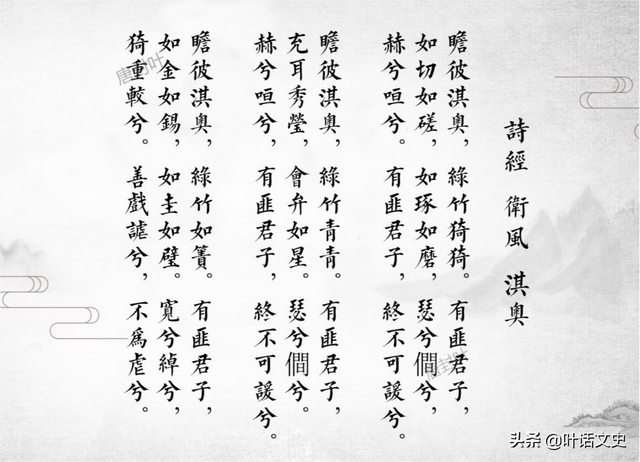 詩經 衛風 淇奧
瞻彼淇奧，綠竹猗猗。有匪君子，
如切如磋，如琢如磨，瑟兮僩兮，
赫兮咺兮。有匪君子，終不可諼兮。
瞻彼淇奧，綠竹青青。有匪君子，
充耳秀瑩，會弁如星。瑟兮僩兮。
赫兮咺兮，有匪君子，終不可諼兮。
瞻彼淇奧，綠竹如簀。有匪君子，
如金如錫，如圭如璧。寬兮綽兮，
猗重較兮。善戲謔兮，不爲虐兮。
唐封叶
唐封叶
头条 @叶话文史